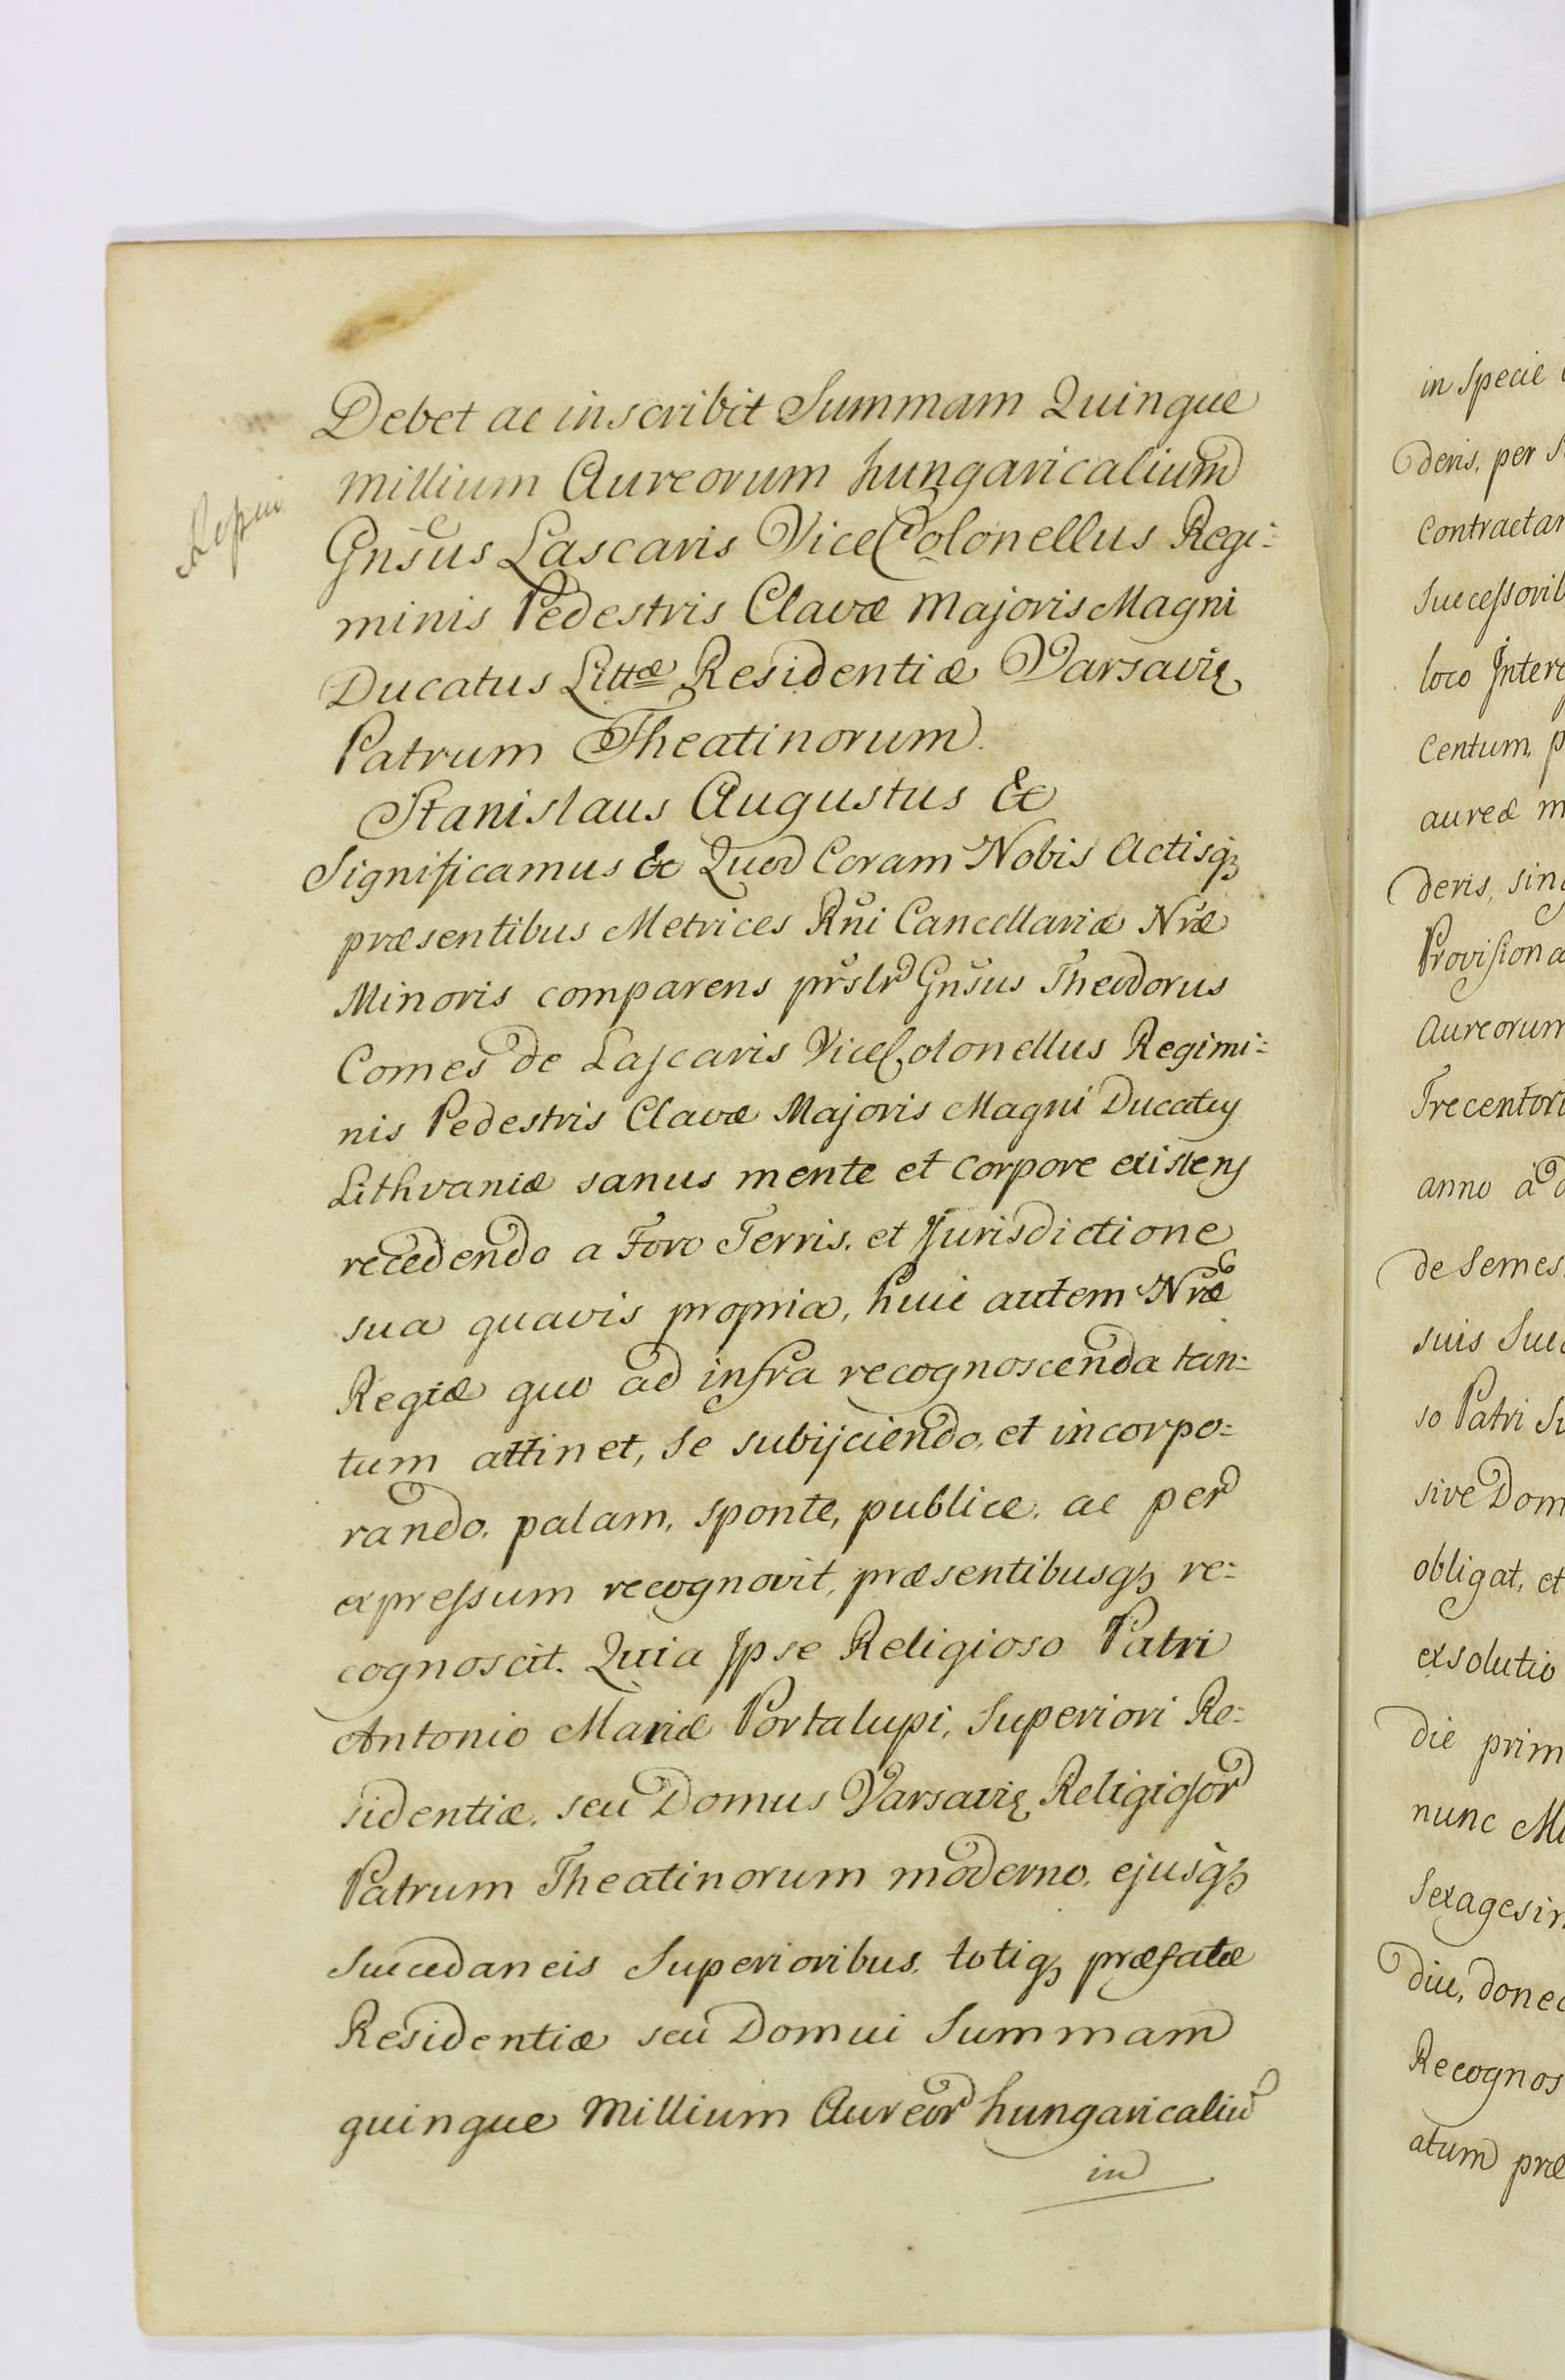 Debet ac inscribit Summam Quinque
millium Aureorum hungaricalium
Gnsus Lascaris ViceColonellus Regi=
minis Pedestris Clavæ Majoris Magni
Ducatus Littæ Residentiæ Varsavię
Patrum Theatinorum.
Stanislaus Augustus &c
Significamus &c Quod Coram Nobis Actisqz
præsentibus Metrices Rni Cancellariæ Nræ
Minoris comparens prslr Gnsus Theodorus
Comes de Lascaris ViceColonellus Regimi=
nis Pedestris Clavæ Majoris Magni Ducatus
Lithvaniæ sanus mente et corpore existens
recedendo a Foro Terris, et Jurisdictione
sua quavis propria, huic autem Nræ
Regiæ quo ad infra recognoscenda tan=
tum attinet, se subijciendo, et incorpo=
rando, palam, sponte, publice, ac per
expressum recognovit, præsentibusqz re=
cognoscit. Quia Ipse Religioso Patri
Antonio Mariæ Portalupi, Superiori Re=
sidentiæ, seu Domus Varsavię Religiosor
Patrum Theatinorum moderno, ejusqz
Succedaneis Superioribus, totiqz præfatæ
Residentiæ seu Domui Summam
quinque Millium Aureor hungaricaliu
in
in specie
deris, per
Contractar
Successorib
loco Intere
Centum, p
aureæ m
deris, sing
Provisiona
Aureorum
Trecentor
anno a d
de Semes
suis Suc
so Patri Su
sive Dom
obligat, et
exsolutio
die prim
nunc Mi
Sexagesim
diu, donec
Recognos
atum præ